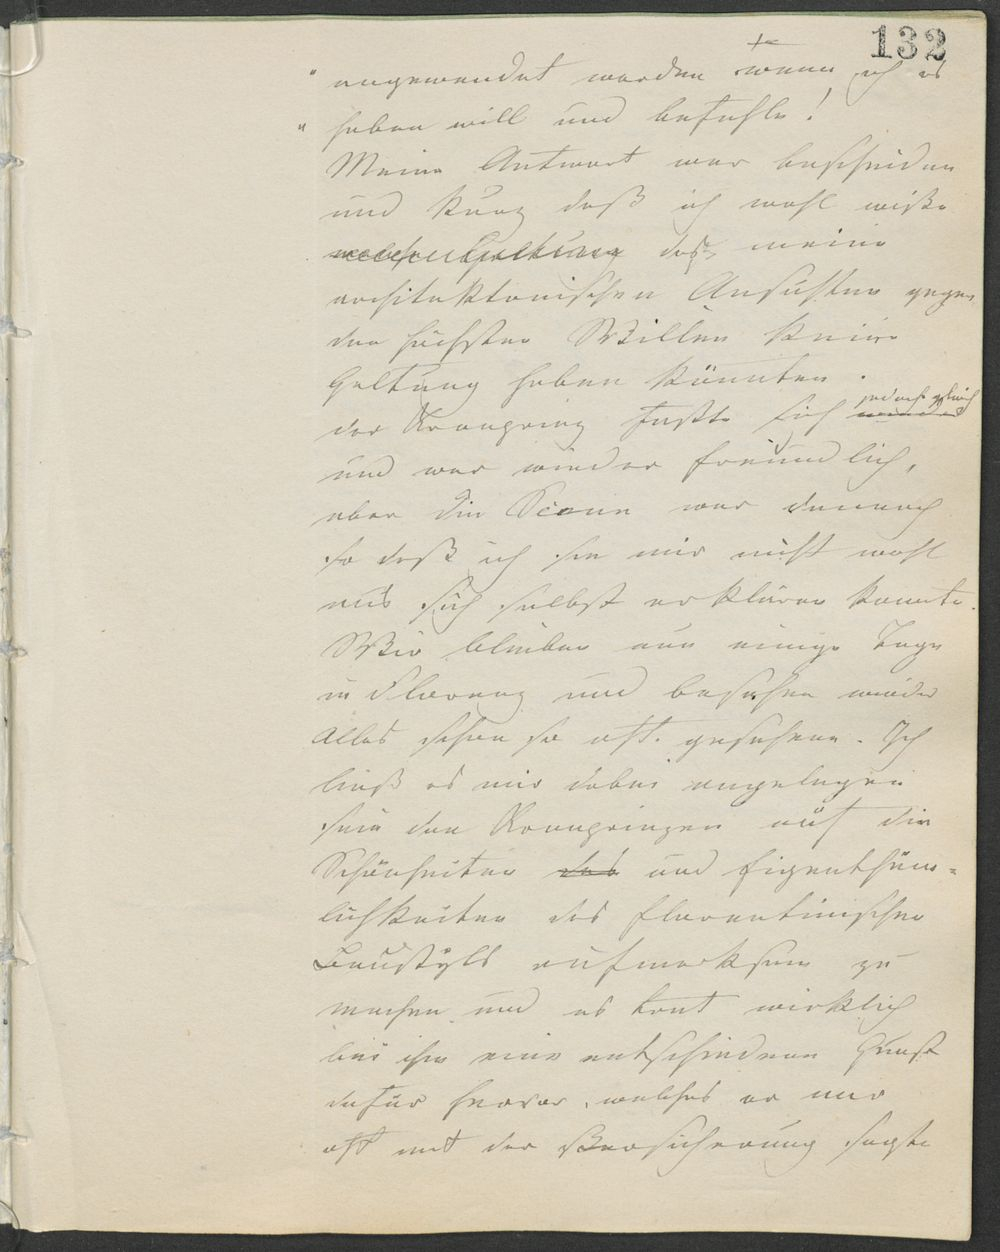 132
" angewendet werden wenn ich es
" haben will und befehle!
Meine Antwort war bescheiden
und kurz daß ich wohl wiße
welche Geltung daß meine
architektonischen Ansichten gegen
den höchsten Willen keine
Geltung haben könnten.
der Kronprinz faßte sich jedoch gleich
und war wieder freundlich,
aber die Scene war dennoch
so daß ich sie mir nicht wohl
aus sich selbst erklären konnte.
Wir blieben nun einige Tage
in Florenz und besahen wieder
Alles schon so oft gesehene. Ich
ließ es mir dabei angelegen
sein den Kronprinzen auf die
Schönheiten des und Eigenthüm-
lichkeiten des florentinischen
Baustyls aufmerksam zu
machen und es trat wirklich
bei ihm eine entschiedene Gunst
dafür hervor, welches er mir
oft mit der Versicherung sagte